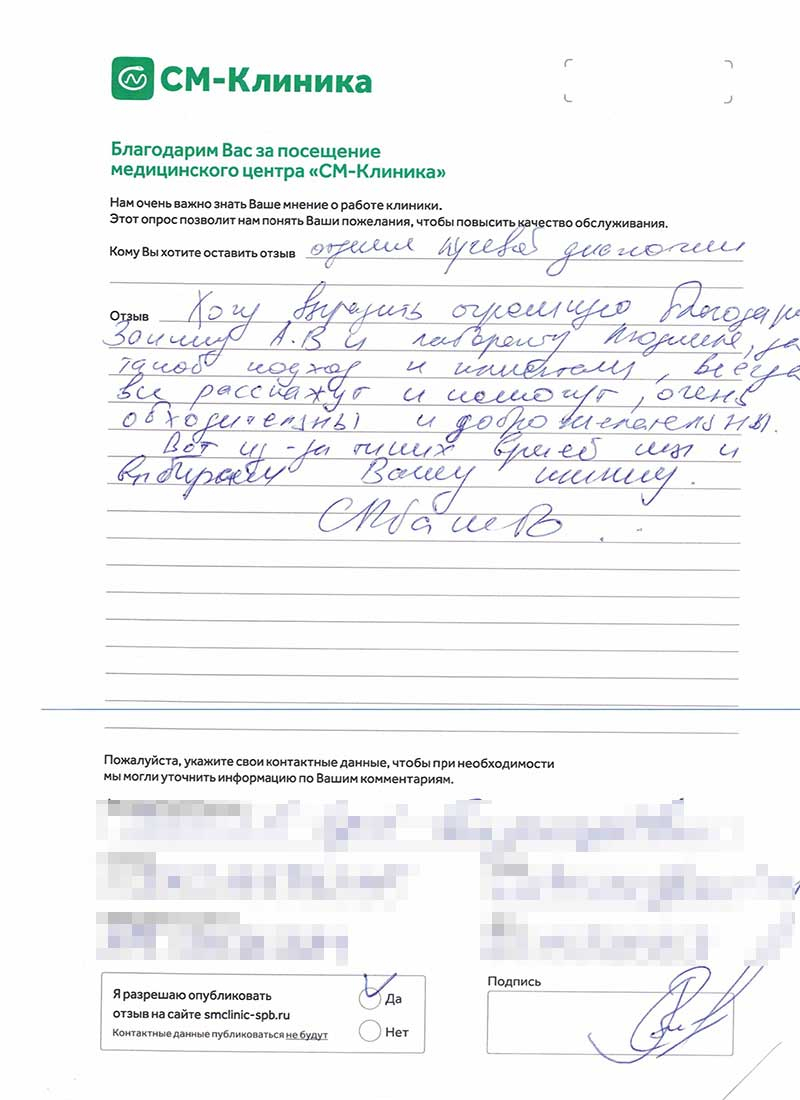 СМ-Клиника
Благодарим Вас за посещение
медицинского центра «СМ-Клиника»
Нам очень важно знать Ваше мнение о работе клиники.
Этот опрос позволит нам понять Ваши пожелания, чтобы повысить качество обслуживания.
Кому Вы хотите оставить отзыв лучевой диагностики
Отзыв Хочу выразить огромную благодар
А.В и лаборанту Людмиле, за
такой подход к клиентам, всегда
все расскажут и помогут, очень
обходительны и доброжелательны.
Вот из-за таких врачей мы и
выбираем Вашу клинику.
Пожалуйста, укажите свои контактные данные, чтобы при необходимости
мы могли уточнить информацию по Вашим комментариям.
Я разрешаю опубликовать
отзыв на сайте smclinic-spb.ru
Контактные данные публиковаться не будут
Да
Нет
Подпись